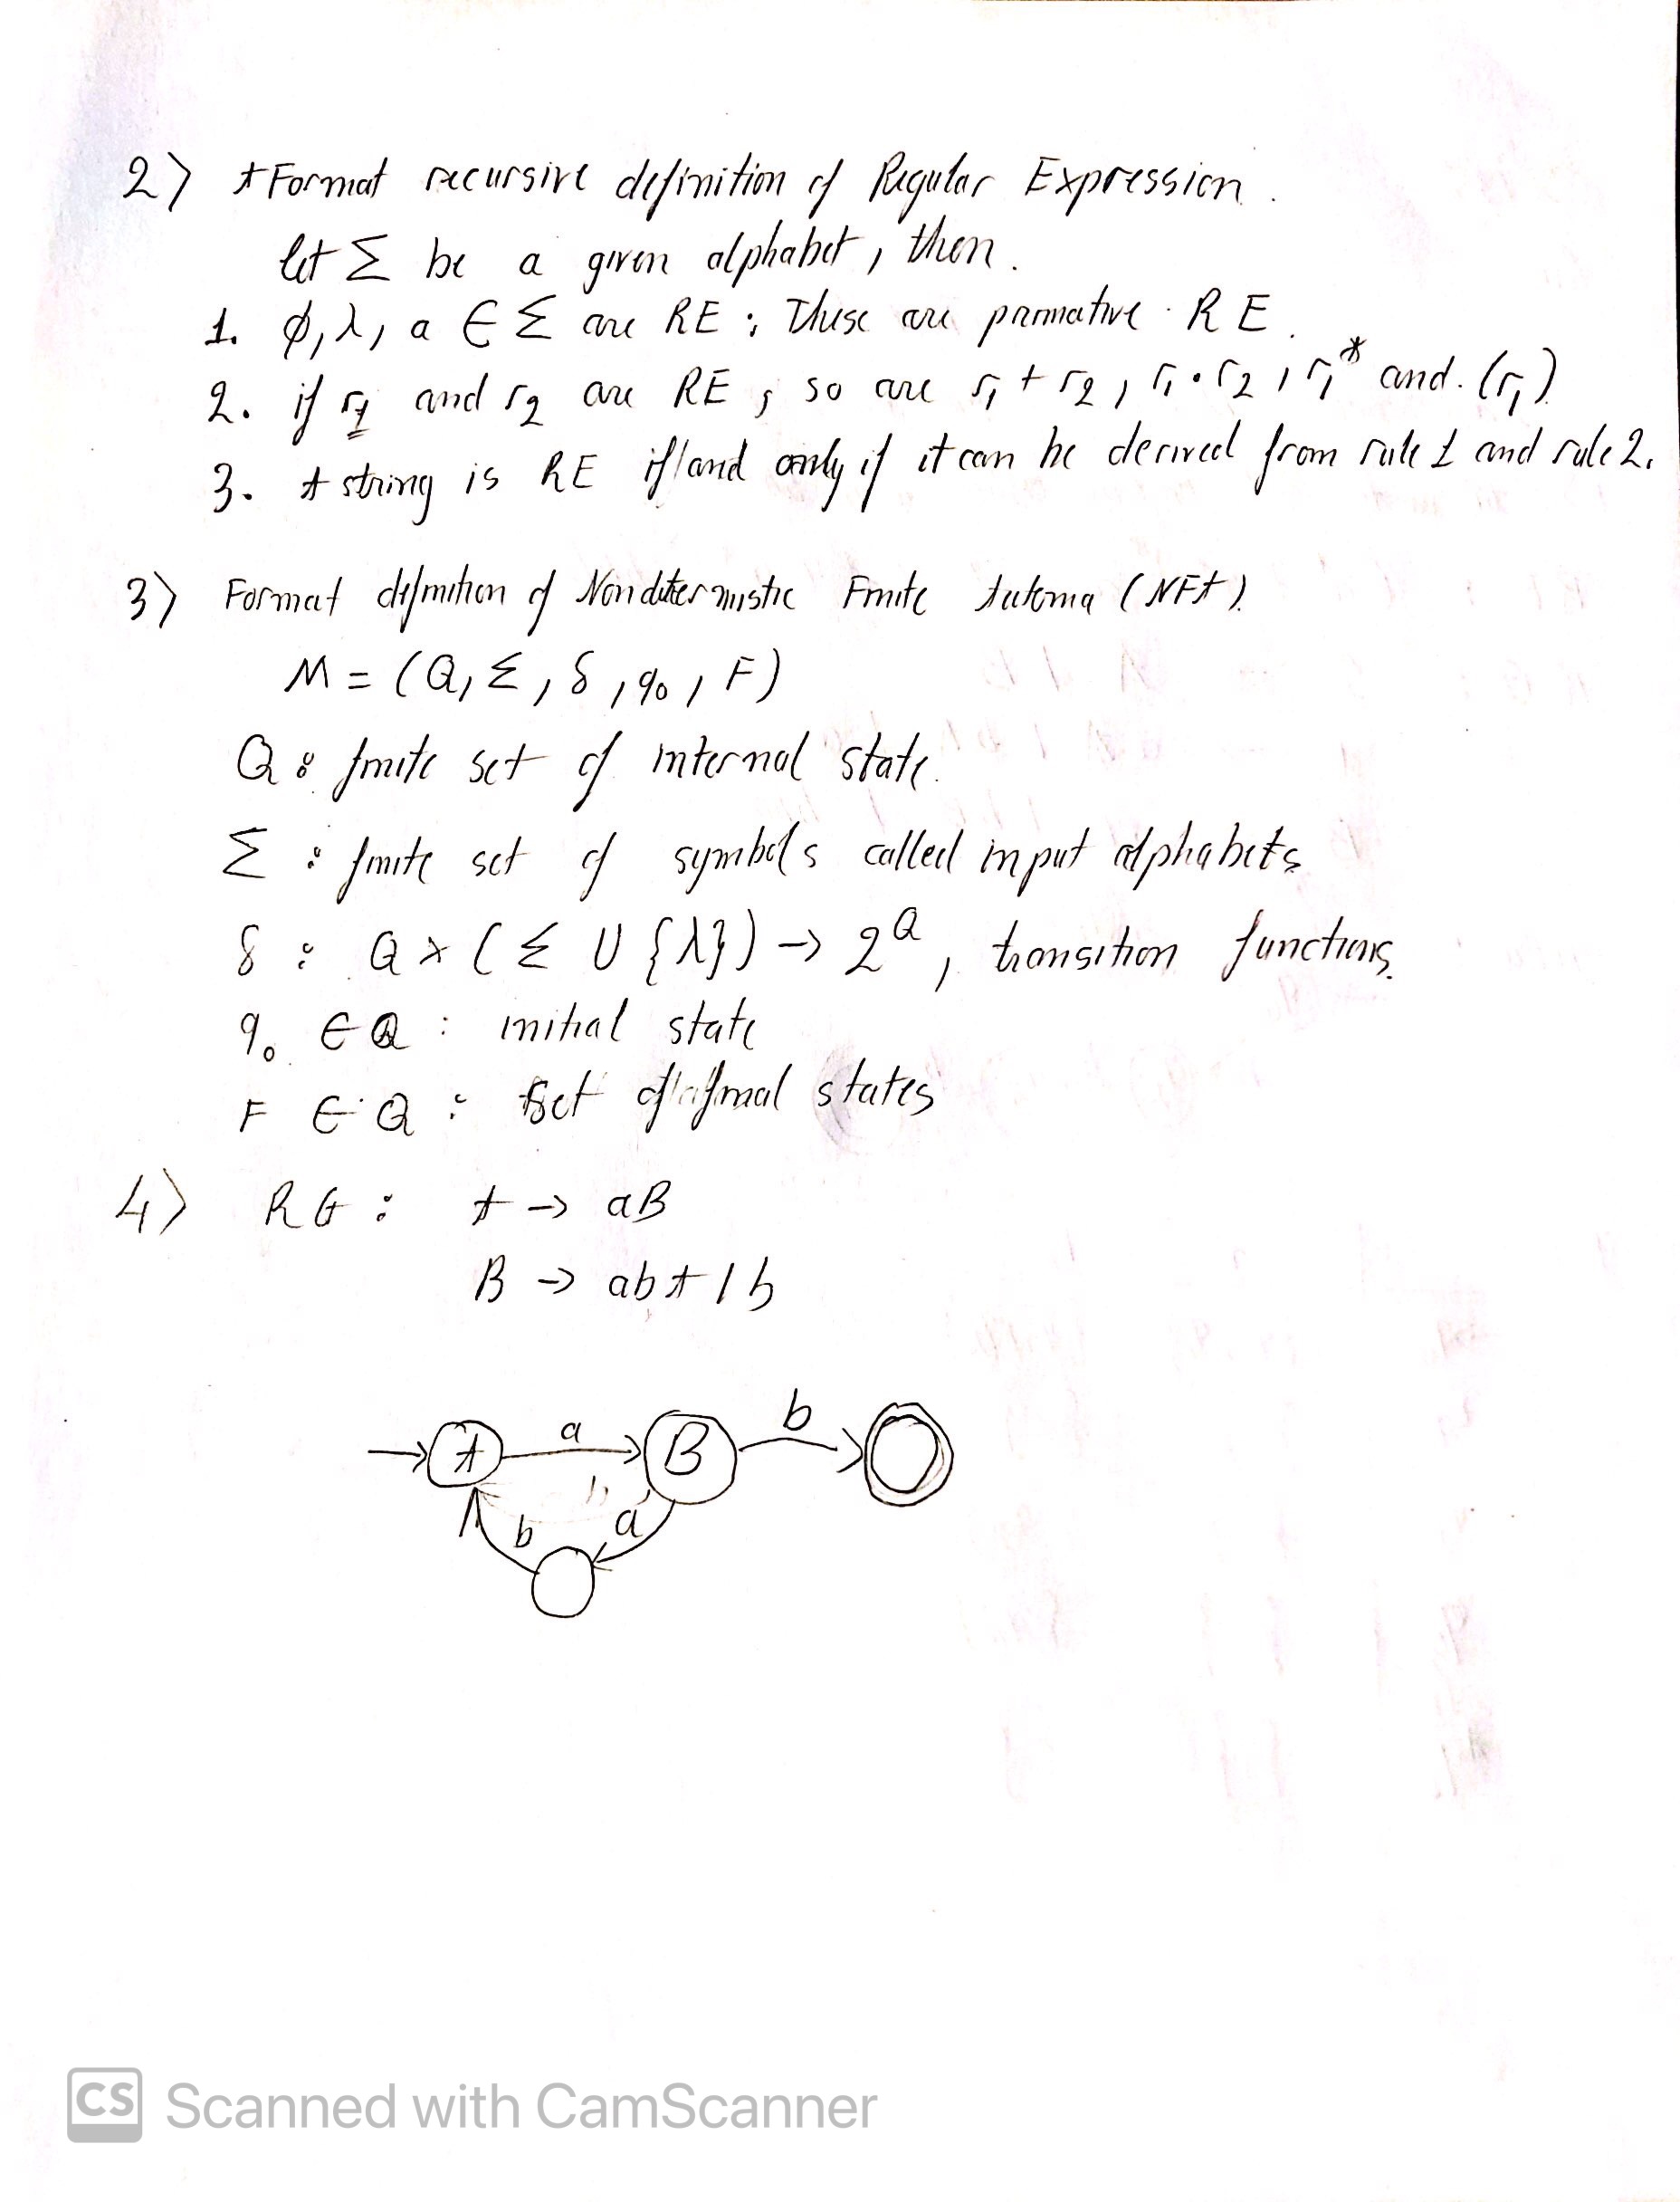 2) A Format recursive definition of Regular Expression.
let Σ be a given alphabet, then.
1. ϕ, λ, a ∈ Σ are RE ; These are primative RE.
2. if r1 and r2 are RE ; so are r1 + r2, r1 • r2, r1* and (r1).
3. A string is RE if and only if it can be derived from rule 1 and rule 2.
3) Format definition of Nonditermistic Finite Automa (NFA).
M = (Q, Σ, δ, q0, F)
Q : finite set of internal state.
Σ : finite set of symbols called input alphabets
δ : Q × (Σ ∪ {λ}) → 2^Q, transition functions.
q0 ∈ Q : initial state
F ∈ Q : set of final states
4) RG : A → aB
B → abA | b
A a B b
b a
CS Scanned with CamScanner